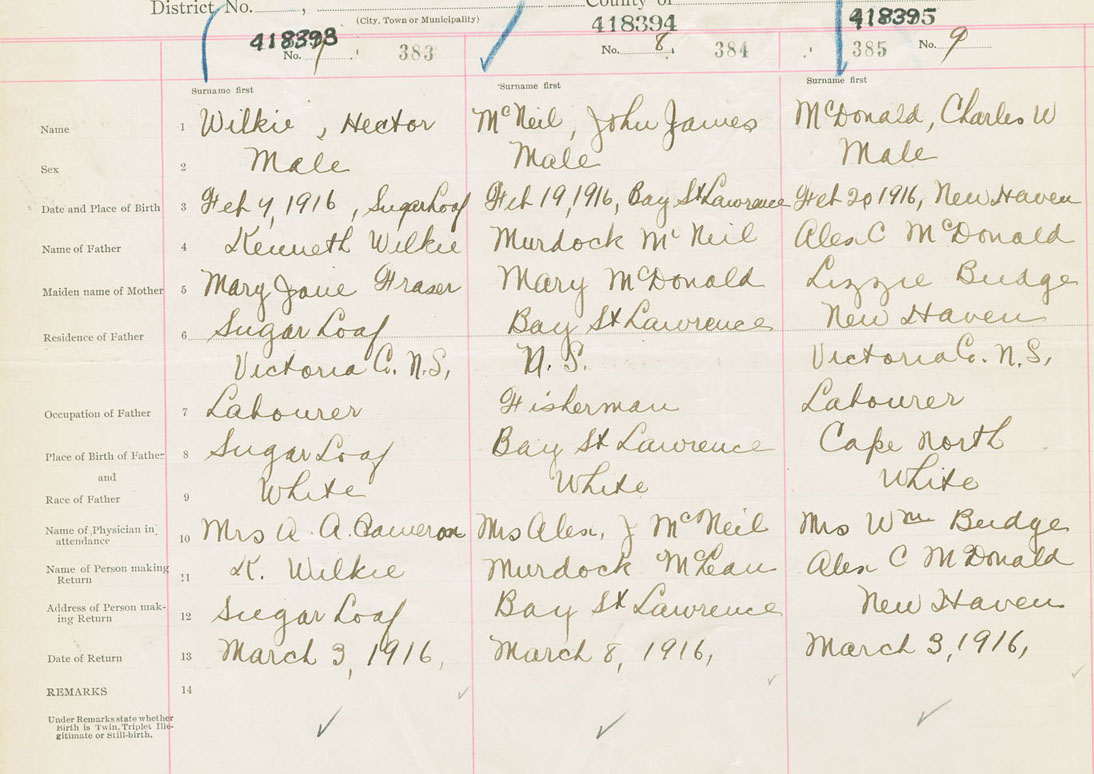 District No. , County of
(City, Town or Municipality)
418393 418394 418395
No. 7 383 No. 8 384 385 No. 9
Surname first Surname first Surname first
Name 1 Wilkie, Hector McNeil, John James McDonald, Charles W
Sex 2 Male Male Male
Date and Place of Birth 3 Feb 4, 1916, Sugar Loaf Feb 19, 1916, Bay St Lawrence Feb 20 1916, New Haven
Name of Father 4 Kenneth Wilkie Murdock McNeil Alex C McDonald
Maiden name of Mother 5 Mary Jane Fraser Mary McDonald Lizzie Budge
Residence of Father 6 Sugar Loaf Bay St Lawrence New Haven
Victoria Co. N.S, N. S. Victoria Co. N.S,
Occupation of Father 7 Labourer Fisherman Labourer
Place of Birth of Father 8 Sugar Loaf Bay St Lawrence Cape North
and
Race of Father 9 White White White
Name of Physician in attendance 10 Mrs A. A. Cameron Mrs Alex. J McNeil Mrs Wm Budge
Name of Person making Return 11 K. Wilkie Murdock McLean Alex C McDonald
Address of Person making Return 12 Sugar Loaf Bay St Lawrence New Haven
Date of Return 13 March 3, 1916, March 8, 1916, March 3, 1916,
REMARKS 14
Under Remarks state whether
Birth is Twin, Triplet Ille-
gitimate or Still-birth.